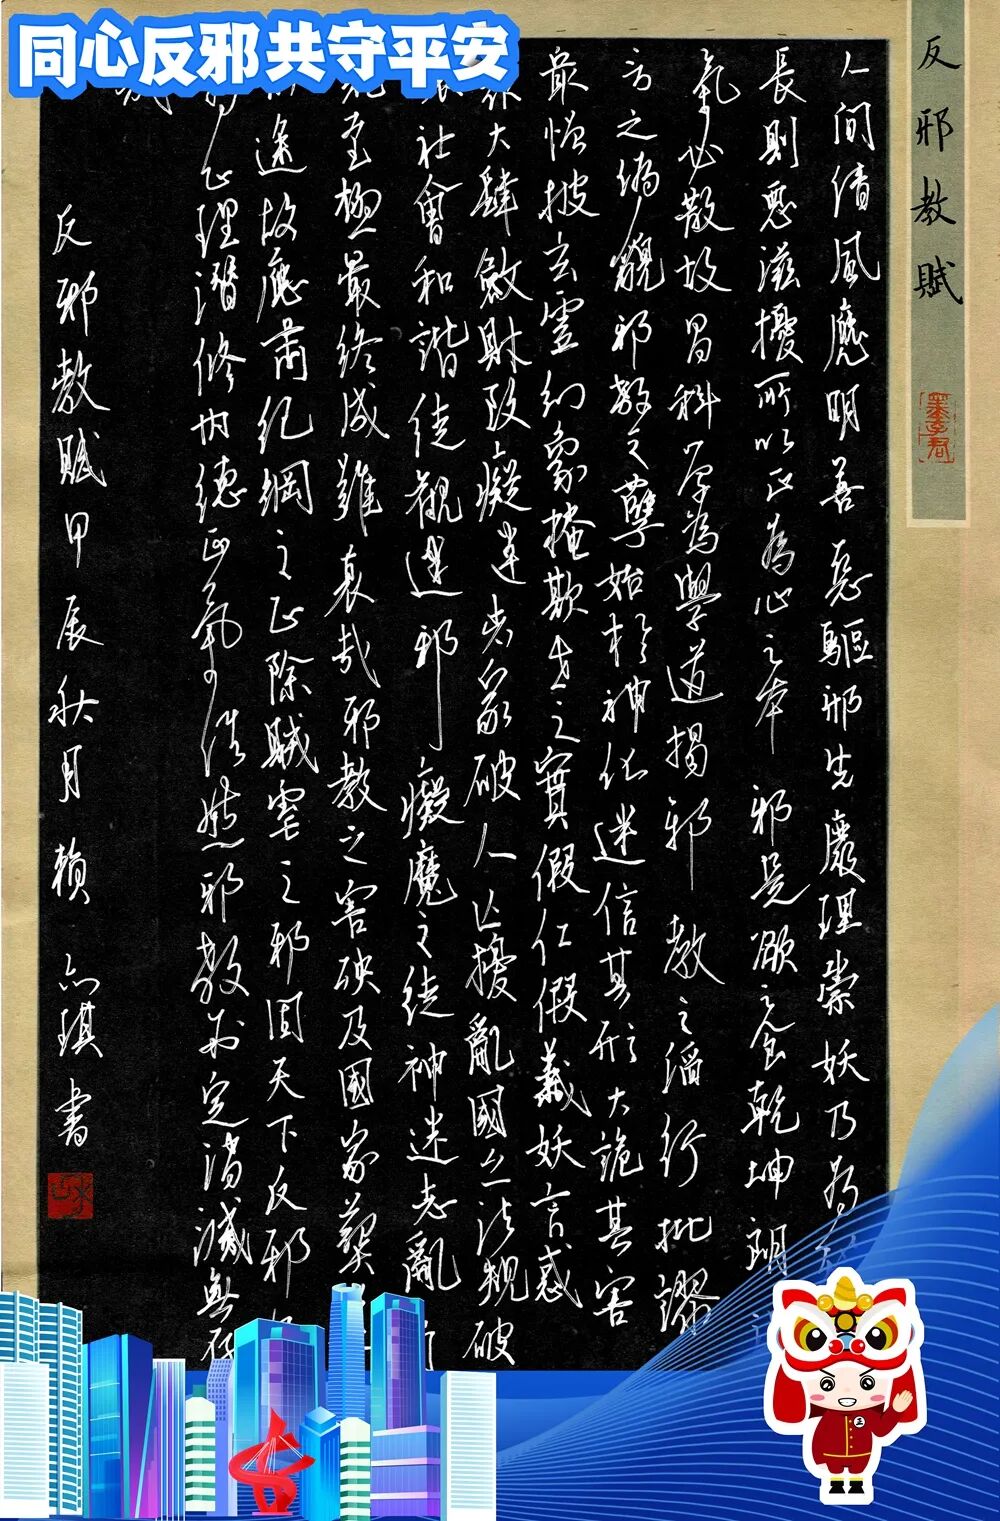 同心反邪共守平安
反邪教賦
人间清風應明善惡驅邪先嚴理崇妖乃
長則惡滋擾所以正為心之本邪是欲之念乾坤朗
氣必散故昌科学為學道揭邪教之滔行批謬
言之偽貌邪教之孽始於神化迷信其形大詭其害
最惱披玄虛幻象掩欺世之實假仁假義妖言惑
大肆斂財段癡迷者家破人亡擾亂國之法規破
社會和諧徒觀迷邪癡魔之徒神迷志亂
至極最終成難哀哉邪教之害殃及國家
途故應肅紀綱之正除賊宅之邪固天下反邪
正理潛修内德正氣浩然邪教必定清滅無存
反邪教賦甲辰秋月賴六琪書